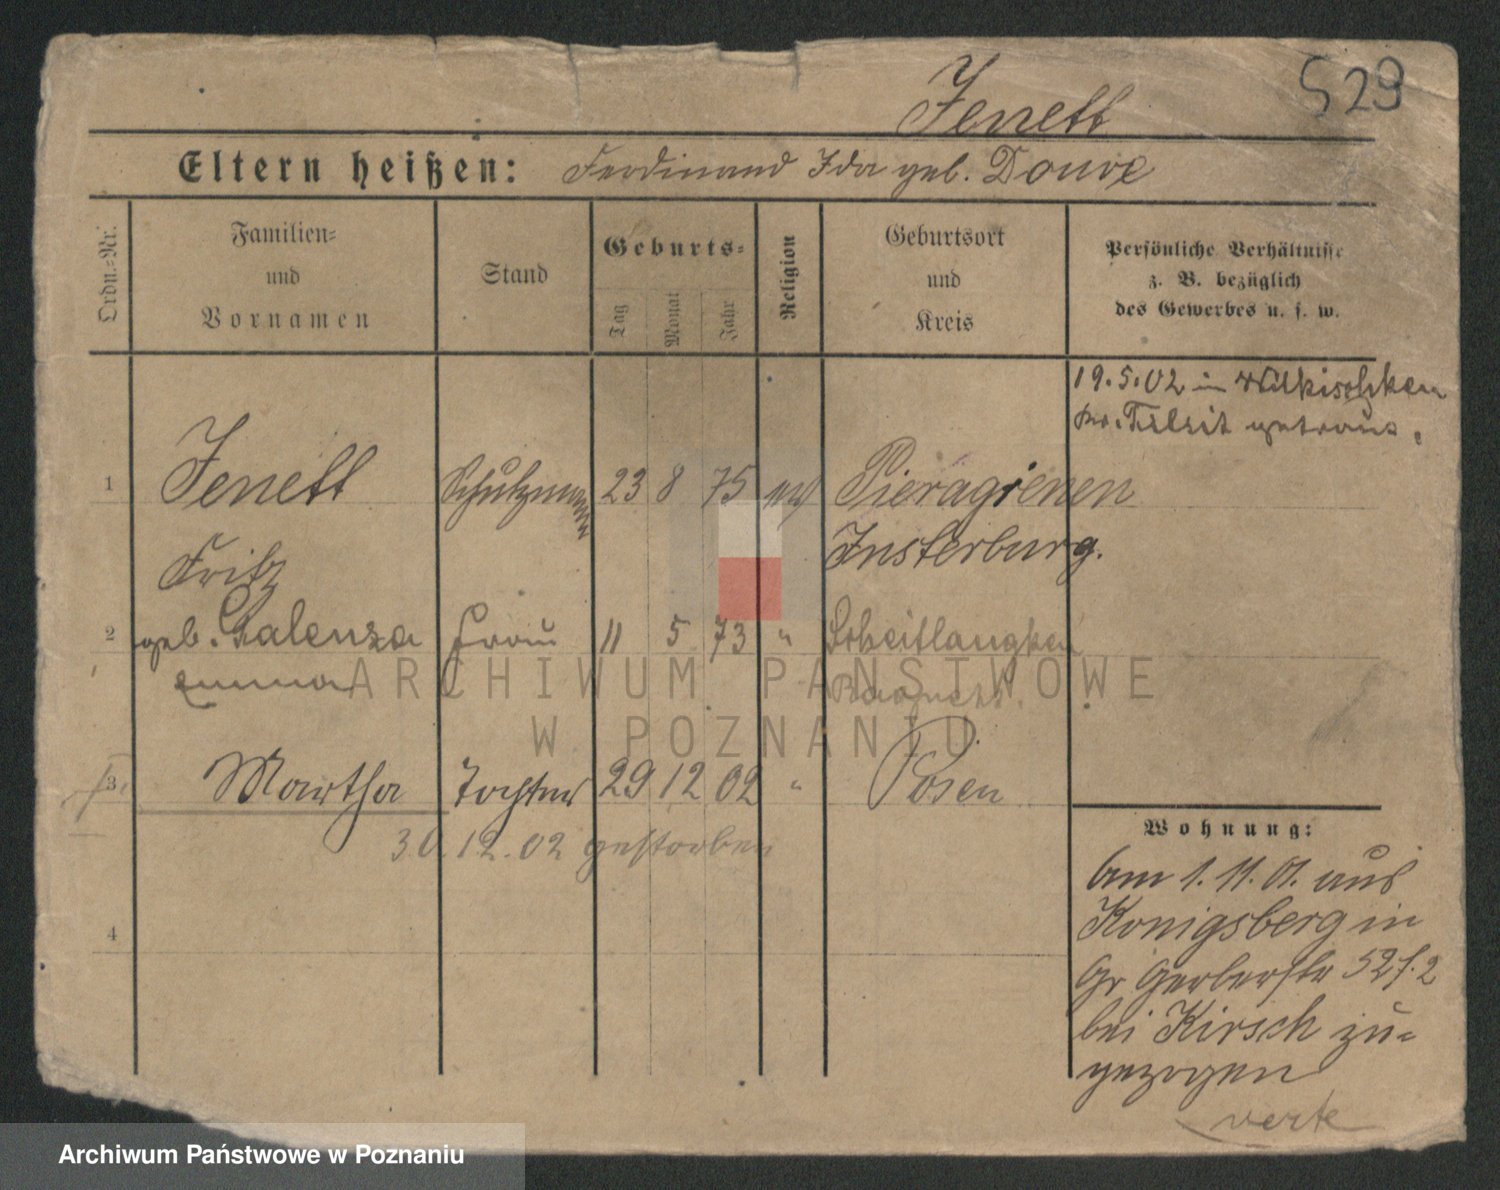 529
Jenett
Eltern heißen: Ferdinand Ida geb. Douve
Ordn.-Nr.
Familien-
und
Vornamen
Stand
Geburts-
Tag
Monat
Jahr
Religion
Geburtsort
und
Kreis
Persönliche Verhältnisse
z. B. bezüglich
des Gewerbes u. s. w.
19.5.02 in Wilkischken
Kr. Tilsit getraut.
1 Jenett Schutzmann 23 8 75 ev Pieragienen
Insterburg.
Fritz
2 geb. Galenza Frau 11 5 73 " 
Emma
3 Martha Tochter 29 12 02 " Posen
30.12.02 gestorben
4
Wohnung:
Am 1.11.01. aus
Königsberg in
Gr Gerberstr 52
bei Kirsch zu-
gezogen
verte
ARCHIWUM PAŃSTWOWE
W POZNANIU
Archiwum Państwowe w Poznaniu